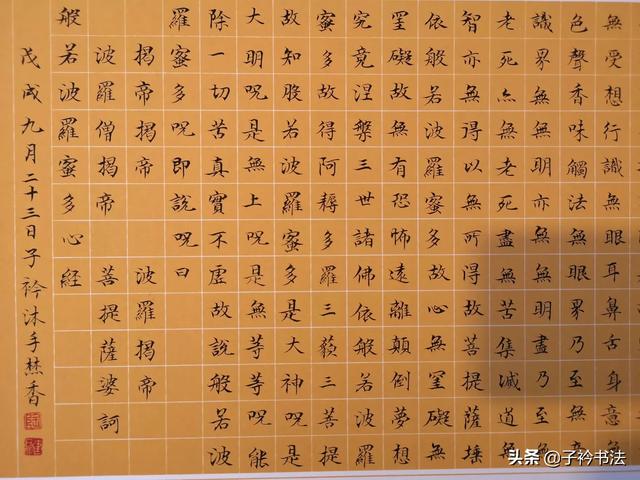 無受想行識無眼耳鼻舌身意無
色聲香味觸法無眼界乃至無意
識界無無明亦無無明盡乃至無
老死亦無老死盡無苦集滅道無
智亦無得以無所得故菩提薩埵
依般若波羅蜜多故心無罣礙無
罣礙故無有恐怖遠離顛倒夢想
究竟涅槃三世諸佛依般若波羅
蜜多故得阿耨多羅三藐三菩提
故知般若波羅蜜多是大神呪是
大明呪是無上呪是無等等呪能
除一切苦真實不虛故說般若波
羅蜜多呪即說呪曰
揭帝揭帝 波羅揭帝
波羅僧揭帝 菩提薩婆訶
般若波羅蜜多心経
戊戌九月二十三日子衿沐手焚香
头条@子衿书法